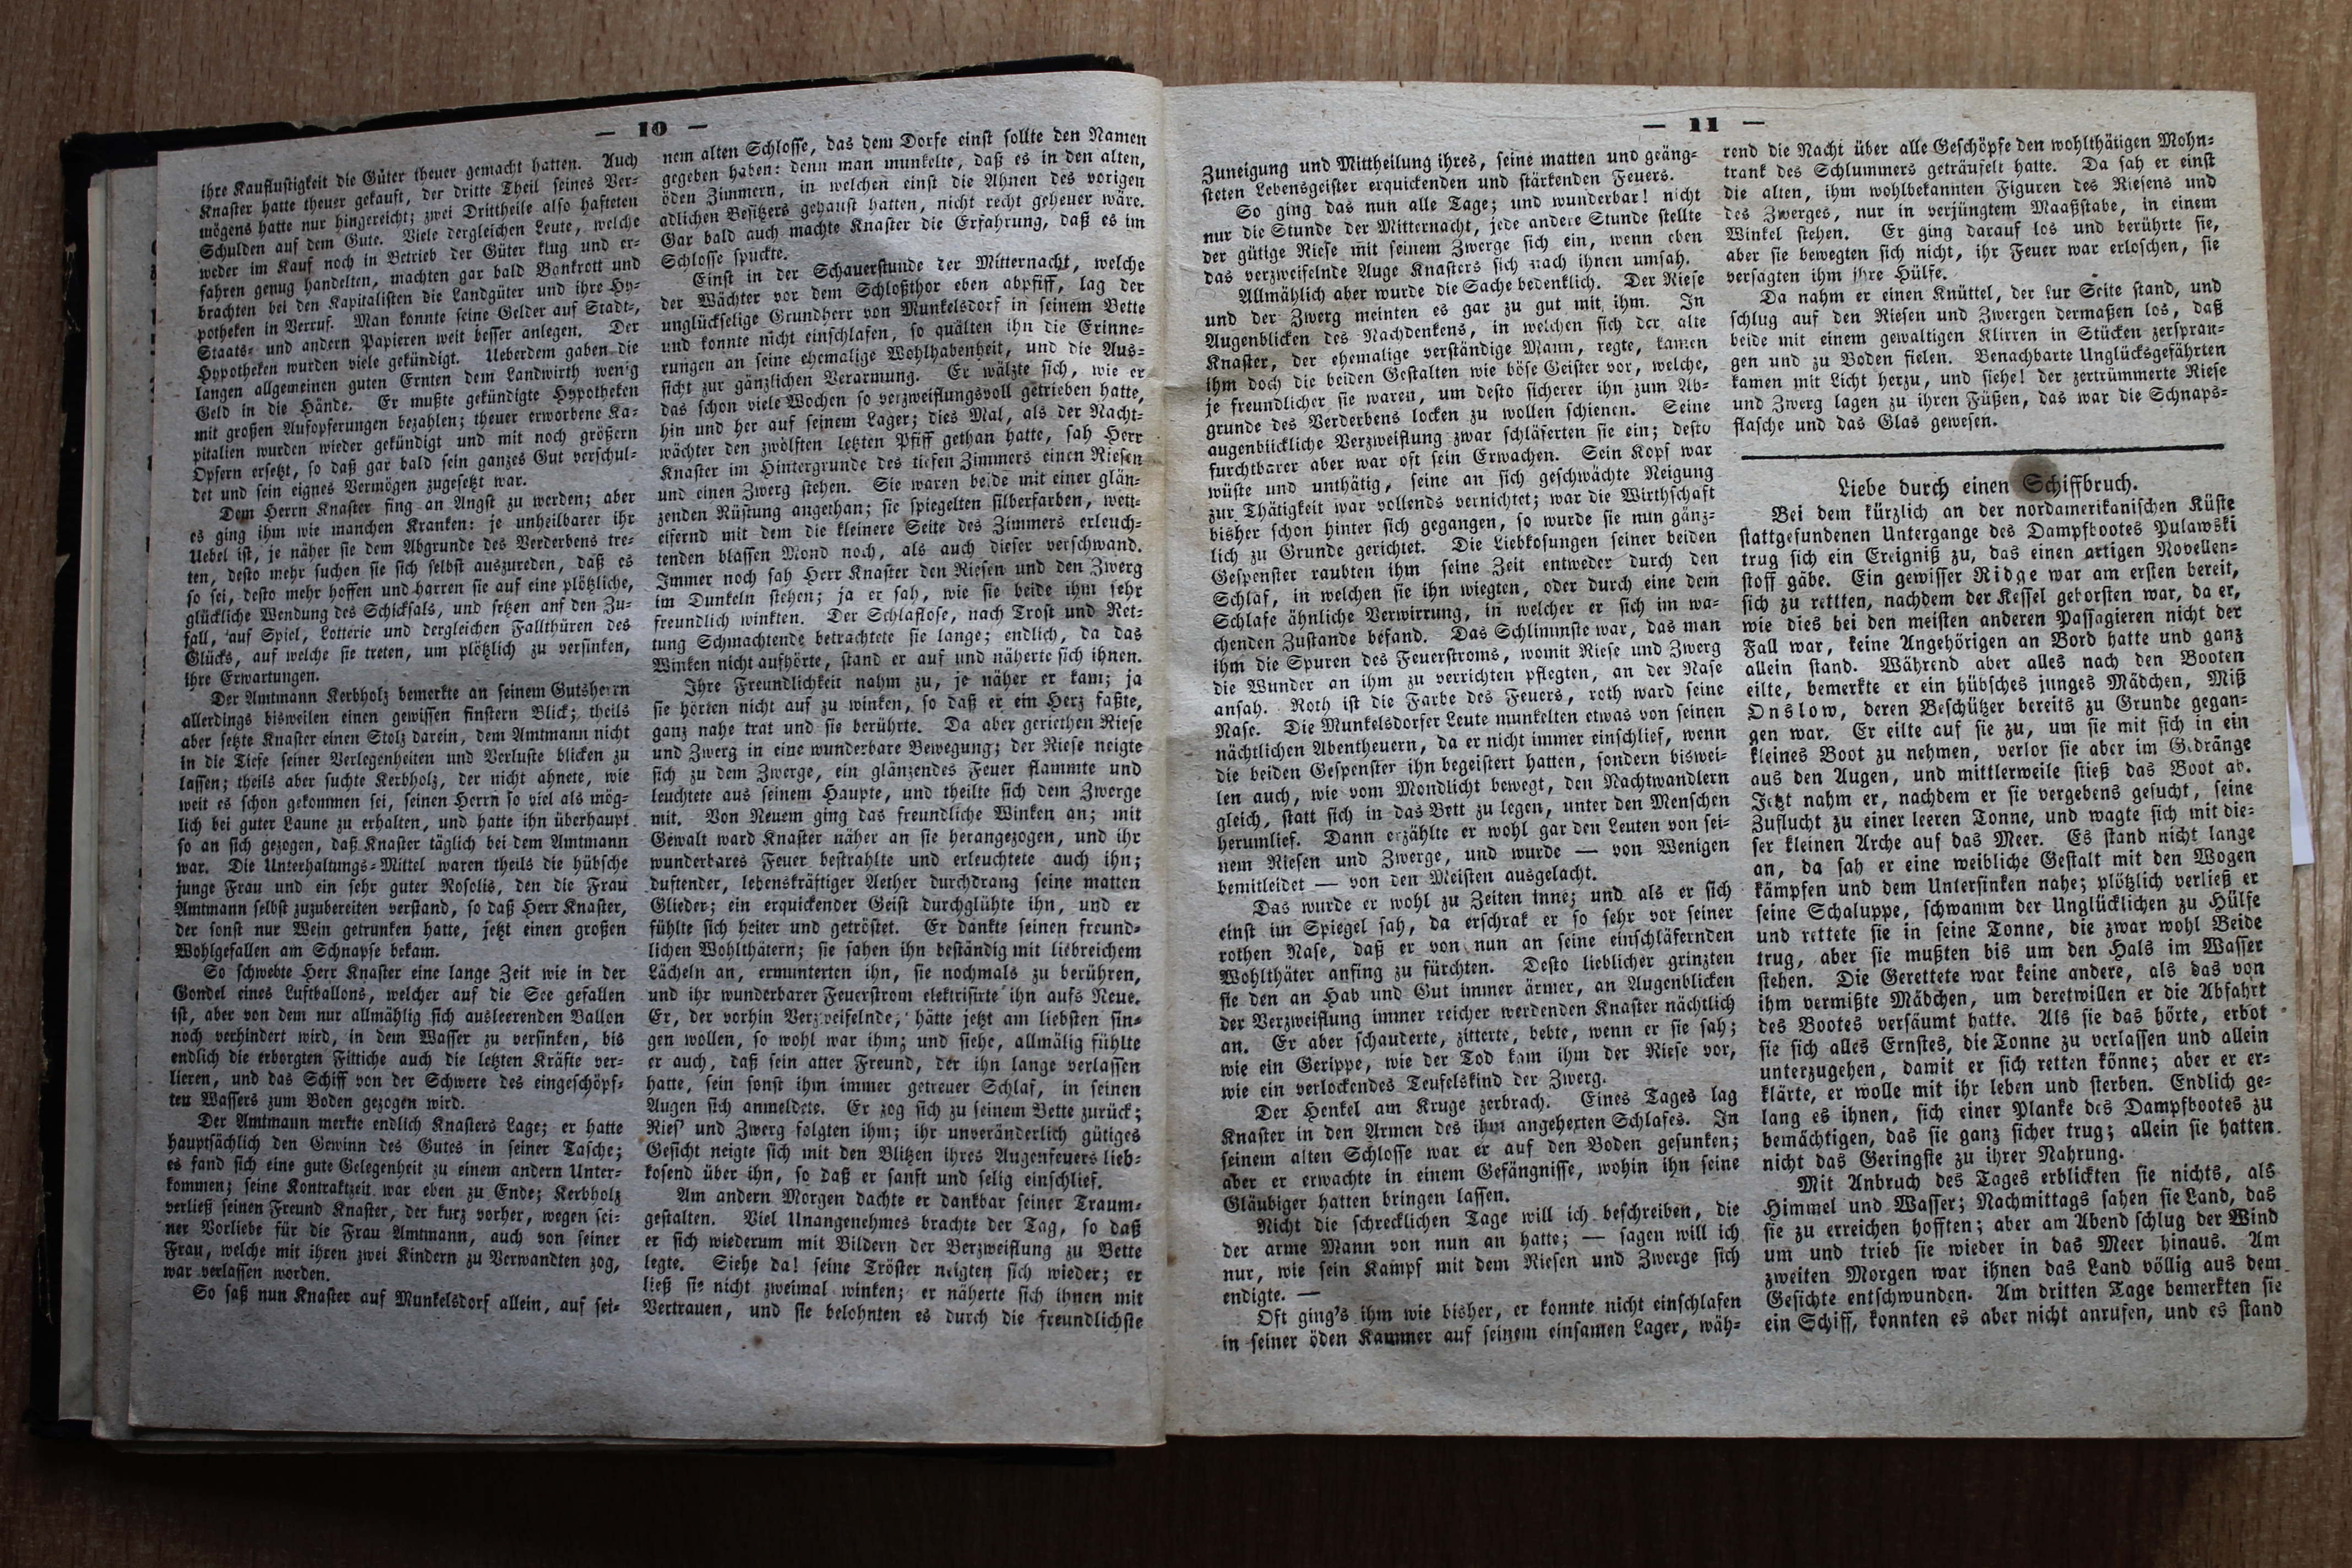 — 10 —
ihre Kauflustigkeit die Güter theuer gemacht hatten. Auch
Knaster hatte theuer gekauft, der dritte Theil seines Ver-
mögens hatte nur hingereicht; zwei Drittheile also hafteten
Schulden auf dem Gute. Viele dergleichen Leute, welche
weder im Kauf noch in Betrieb der Güter klug und er-
fahren genug handelten, machten gar bald Bankrott und
brachten bei den Kapitalisten die Landgüter und ihre Hy-
potheken in Verruf. Man konnte seine Gelder auf Stadt-,
Staats- und andern Papieren weit besser anlegen. Der
Hypotheken wurden viele gekündigt. Ueberdem gaben die
langen allgemeinen guten Ernten dem Landwirth wenig
Geld in die Hände. Er mußte gekündigte Hypotheken
mit großen Aufopferungen bezahlen; theuer erworbene Ka-
pitalien wurden wieder gekündigt und mit noch größern
Opfern ersetzt, so daß gar bald sein ganzes Gut verschul-
det und sein eignes Vermögen zugesetzt war.
Dem Herrn Knaster fing an Angst zu werden; aber
es ging ihm wie manchen Kranken: je unheilbarer ihr
Uebel ist, je näher sie dem Abgrunde des Verderbens tre-
ten, desto mehr suchen sie sich selbst auszureden, daß es
so sei, desto mehr hoffen und harren sie auf eine plötzliche,
glückliche Wendung des Schicksals, und setzen anf den Zu-
fall, auf Spiel, Lotterie und dergleichen Fallthüren des
Glücks, auf welche sie treten, um plötzlich zu versinken,
ihre Erwartungen.
Der Amtmann Kerbholz bemerkte an seinem Gutsherrn
allerdings bisweilen einen gewissen finstern Blick; theils
aber setzte Knaster einen Stolz darein, dem Amtmann nicht
in die Tiefe seiner Verlegenheiten und Verluste blicken zu
lassen; theils aber suchte Kerbholz, der nicht ahnete, wie
weit es schon gekommen sei, seinen Herrn so viel als mög-
lich bei guter Laune zu erhalten, und hatte ihn überhaupt
so an sich gezogen, daß Knaster täglich bei dem Amtmann
war. Die Unterhaltungs-Mittel waren theils die hübsche
junge Frau und ein sehr guter Rosolis, den die Frau
Amtmann selbst zuzubereiten verstand, so daß Herr Knaster,
der sonst nur Wein getrunken hatte, jetzt einen großen
Wohlgefallen am Schnapse bekam.
So schwebte Herr Knaster eine lange Zeit wie in der
Gondel eines Luftballons, welcher auf die See gefallen
ist, aber von dem nur allmählig sich ausleerenden Ballon
noch verhindert wird, in dem Wasser zu versinken, bis
endlich die erborgten Fittiche auch die letzten Kräfte ver-
lieren, und das Schiff von der Schwere des eingeschöpf-
ten Wassers zum Boden gezogen wird.
Der Amtmann merkte endlich Knasters Lage; er hatte
hauptsächlich den Gewinn des Gutes in seiner Tasche;
es fand sich eine gute Gelegenheit zu einem andern Unter-
kommen; seine Kontraktzeit war eben zu Ende; Kerbholz
verließ seinen Freund Knaster, der kurz vorher, wegen sei-
ner Vorliebe für die Frau Amtmann, auch von seiner
Frau, welche mit ihren zwei Kindern zu Verwandten zog,
war verlassen worden.
So saß nun Knaster auf Munkelsdorf allein, auf sei-
nem alten Schlosse, das dem Dorfe einst sollte den Namen
gegeben haben: denn man munkelte, daß es in den alten,
öden Zimmern, in welchen einst die Ahnen des vorigen
adlichen Besitzers gehaust hatten, nicht recht geheuer wäre.
Gar bald auch machte Knaster die Erfahrung, daß es im
Schlosse spuckte.
Einst in der Schauerstunde der Mitternacht, welche
der Wächter vor dem Schloßthor eben abpfiff, lag der
unglückselige Grundherr von Munkelsdorf in seinem Bette
und konnte nicht einschlafen, so quälten ihn die Erinne-
rungen an seine ehemalige Wohlhabenheit, und die Aus-
sicht zur gänzlichen Verarmung. Er wälzte sich, wie er
das schon viele Wochen so verzweiflungsvoll getrieben hatte,
hin und her auf seinem Lager; dies Mal, als der Nacht-
wächter den zwölften letzten Pfiff gethan hatte, sah Herr
Knaster im Hintergrunde des tiefen Zimmers einen Riesen
und einen Zwerg stehen. Sie waren beide mit einer glän-
zenden Rüstung angethan; sie spiegelten silberfarben, wett-
eifernd mit dem die kleinere Seite des Zimmers erleuch-
tenden blassen Mond noch, als auch dieser verschwand.
Immer noch sah Herr Knaster den Riesen und den Zwerg
im Dunkeln stehen; ja er sah, wie sie beide ihm sehr
freundlich winkten. Der Schlaflose, nach Trost und Ret-
tung Schmachtende betrachtete sie lange; endlich, da das
Winken nicht aufhörte, stand er auf und näherte sich ihnen.
Ihre Freundlichkeit nahm zu, je näher er kam; ja
sie hörten nicht auf zu winken, so daß er ein Herz faßte,
ganz nahe trat und sie berührte. Da aber geriethen Riese
und Zwerg in eine wunderbare Bewegung; der Riese neigte
sich zu dem Zwerge, ein glänzendes Feuer flammte und
leuchtete aus seinem Haupte, und theilte sich dem Zwerge
mit. Von Neuem ging das freundliche Winken an; mit
Gewalt ward Knaster näher an sie herangezogen, und ihr
wunderbares Feuer bestrahlte und erleuchtete auch ihn;
duftender, lebenskräftiger Aether durchdrang seine matten
Glieder; ein erquickender Geist durchglühte ihn, und er
fühlte sich heiter und getröstet. Er dankte seinen freund-
lichen Wohlthätern; sie sahen ihn beständig mit liebreichem
Lächeln an, ermunterten ihn, sie nochmals zu berühren,
und ihr wunderbarer Feuerstrom elektrisirte ihn aufs Neue.
Er, der vorhin Verzweifelnde, hätte jetzt am liebsten sin-
gen wollen, so wohl war ihm; und siehe, allmälig fühlte
er auch, daß sein atter Freund, der ihn lange verlassen
hatte, sein sonst ihm immer getreuer Schlaf, in seinen
Augen sich anmeldete. Er zog sich zu seinem Bette zurück;
Ries' und Zwerg folgten ihm; ihr unveränderlich gütiges
Gesicht neigte sich mit den Blitzen ihres Augenfeuers lieb-
kosend über ihn, so daß er sanft und selig einschlief.
Am andern Morgen dachte er dankbar seiner Traum-
gestalten. Viel Unangenehmes brachte der Tag, so daß
er sich wiederum mit Bildern der Verzweiflung zu Bette
legte. Siehe da! seine Tröster neigten sich wieder; er
ließ sie nicht zweimal winken; er näherte sich ihnen mit
Vertrauen, und sie belohnten es durch die freundlichste
— 11 —
Zuneigung und Mittheilung ihres, seine matten und geäng-
steten Lebensgeister erquickenden und stärkenden Feuers.
So ging das nun alle Tage; und wunderbar! nicht
nur die Stunde der Mitternacht, jede andere Stunde stellte
der gütige Riese mit seinem Zwerge sich ein, wenn eben
das verzweifelnde Auge Knasters sich nach ihnen umsah.
Allmählich aber wurde die Sache bedenklich. Der Riese
und der Zwerg meinten es gar zu gut mit ihm. In
Augenblicken des Nachdenkens, in welchen sich der alte
Knaster, der ehemalige verständige Mann, regte, kamen
ihm doch die beiden Gestalten wie böse Geister vor, welche,
je freundlicher sie waren, um desto sicherer ihn zum Ab-
grunde des Verderbens locken zu wollen schienen. Seine
augenblickliche Verzweiflung zwar schläferten sie ein; desto
furchtbarer aber war oft sein Erwachen. Sein Kopf war
wüste und unthätig, seine an sich geschwächte Neigung
zur Thätigkeit war vollends vernichtet; war die Wirthschaft
bisher schon hinter sich gegangen, so wurde sie nun gänz-
lich zu Grunde gerichtet. Die Liebkosungen seiner beiden
Gespenster raubten ihm seine Zeit entweder durch den
Schlaf, in welchen sie ihn wiegten, oder durch eine dem
Schlafe ähnliche Verwirrung, in welcher er sich im wa-
chenden Zustande befand. Das Schlimmste war, das man
ihm die Spuren des Feuerstroms, womit Riese und Zwerg
die Wunder an ihm zu verrichten pflegten, an der Nase
ansah. Roth ist die Farbe des Feuers, roth ward seine
Nase. Die Munkelsdorfer Leute munkelten etwas von seinen
nächtlichen Abentheuern, da er nicht immer einschlief, wenn
die beiden Gespenster ihn begeistert hatten, sondern biswei-
len auch, wie vom Mondlicht bewegt, den Nachtwandlern
gleich, statt sich in das Bett zu legen, unter den Menschen
herumlief. Dann erzählte er wohl gar den Leuten von sei-
nem Riesen und Zwerge, und wurde — von Wenigen
bemitleidet — von den Meisten ausgelacht.
Das wurde er wohl zu Zeiten inne; und als er sich
einst im Spiegel sah, da erschrak er so sehr vor seiner
rothen Nase, daß er von nun an seine einschläfernden
Wohlthäter anfing zu fürchten. Desto lieblicher grinzten
sie den an Hab und Gut immer ärmer, an Augenblicken
der Verzweiflung immer reicher werdenden Knaster nächtlich
an. Er aber schauderte, zitterte, bebte, wenn er sie sah;
wie ein Gerippe, wie der Tod kam ihm der Riese vor,
wie ein verlockendes Teufelskind der Zwerg.
Der Henkel am Kruge zerbrach. Eines Tages lag
Knaster in den Armen des ihm angehexten Schlafes. In
seinem alten Schlosse war er auf den Boden gesunken;
aber er erwachte in einem Gefängnisse, wohin ihn seine
Gläubiger hatten bringen lassen.
Nicht die schrecklichen Tage will ich beschreiben, die
der arme Mann von nun an hatte; — sagen will ich
nur, wie sein Kampf mit dem Riesen und Zwerge sich
endigte. —
Oft ging's ihm wie bisher, er konnte nicht einschlafen
in seiner öden Kammer auf seinem einsamen Lager, wäh-
rend die Nacht über alle Geschöpfe den wohlthätigen Mohn-
trank des Schlummers geträufelt hatte. Da sah er einst
die alten, ihm wohlbekannten Figuren des Riesens und
des Zwerges, nur in verjüngtem Maaßstabe, in einem
Winkel stehen. Er ging darauf los und berührte sie,
aber sie bewegten sich nicht, ihr Feuer war erloschen, sie
versagten ihm ihre Hülfe.
Da nahm er einen Knüttel, der zur Seite stand, und
schlug auf den Riesen und Zwergen dermaßen los, daß
beide mit einem gewaltigen Klirren in Stücken zerspran-
gen und zu Boden fielen. Benachbarte Unglücksgefährten
kamen mit Licht herzu, und siehe! der zertrümmerte Riese
und Zwerg lagen zu ihren Füßen, das war die Schnaps-
flasche und das Glas gewesen.
Liebe durch einen Schiffbruch.
Bei dem kürzlich an der nordamerikanischen Küste
stattgefundenen Untergange des Dampfbootes Pulawski
trug sich ein Ereigniß zu, das einen artigen Novellen-
stoff gäbe. Ein gewisser Ridge war am ersten bereit,
sich zu rettten, nachdem der Kessel geborsten war, da er,
wie dies bei den meisten anderen Passagieren nicht der
Fall war, keine Angehörigen an Bord hatte und ganz
allein stand. Während aber alles nach den Booten
eilte, bemerkte er ein hübsches junges Mädchen, Miß
Onslow, deren Beschützer bereits zu Grunde gegan-
gen war. Er eilte auf sie zu, um sie mit sich in ein
kleines Boot zu nehmen, verlor sie aber im Gedränge
aus den Augen, und mittlerweile stieß das Boot ab.
Jetzt nahm er, nachdem er sie vergebens gesucht, seine
Zuflucht zu einer leeren Tonne, und wagte sich mit die-
ser kleinen Arche auf das Meer. Es stand nicht lange
an, da sah er eine weibliche Gestalt mit den Wogen
kämpfen und dem Untersinken nahe; plötzlich verließ er
seine Schaluppe, schwamm der Unglücklichen zu Hülfe
und rettete sie in seine Tonne, die zwar wohl Beide
trug, aber sie mußten bis um den Hals im Wasser
stehen. Die Gerettete war keine andere, als das von
ihm vermißte Mädchen, um deretwillen er die Abfahrt
des Bootes versäumt hatte. Als sie das hörte, erbot
sie sich alles Ernstes, die Tonne zu verlassen und allein
unterzugehen, damit er sich retten könne; aber er er-
klärte, er wolle mit ihr leben und sterben. Endlich ge-
lang es ihnen, sich einer Planke des Dampfbootes zu
bemächtigen, das sie ganz sicher trug; allein sie hatten
nicht das Geringste zu ihrer Nahrung.
Mit Anbruch des Tages erblickten sie nichts, als
Himmel und Wasser; Nachmittags sahen sie Land, das
sie zu erreichen hofften; aber am Abend schlug der Wind
um und trieb sie wieder in das Meer hinaus. Am
zweiten Morgen war ihnen das Land völlig aus dem
Gesichte entschwunden. Am dritten Tage bemerkten sie
ein Schiff, konnten es aber nicht anrufen, und es stand